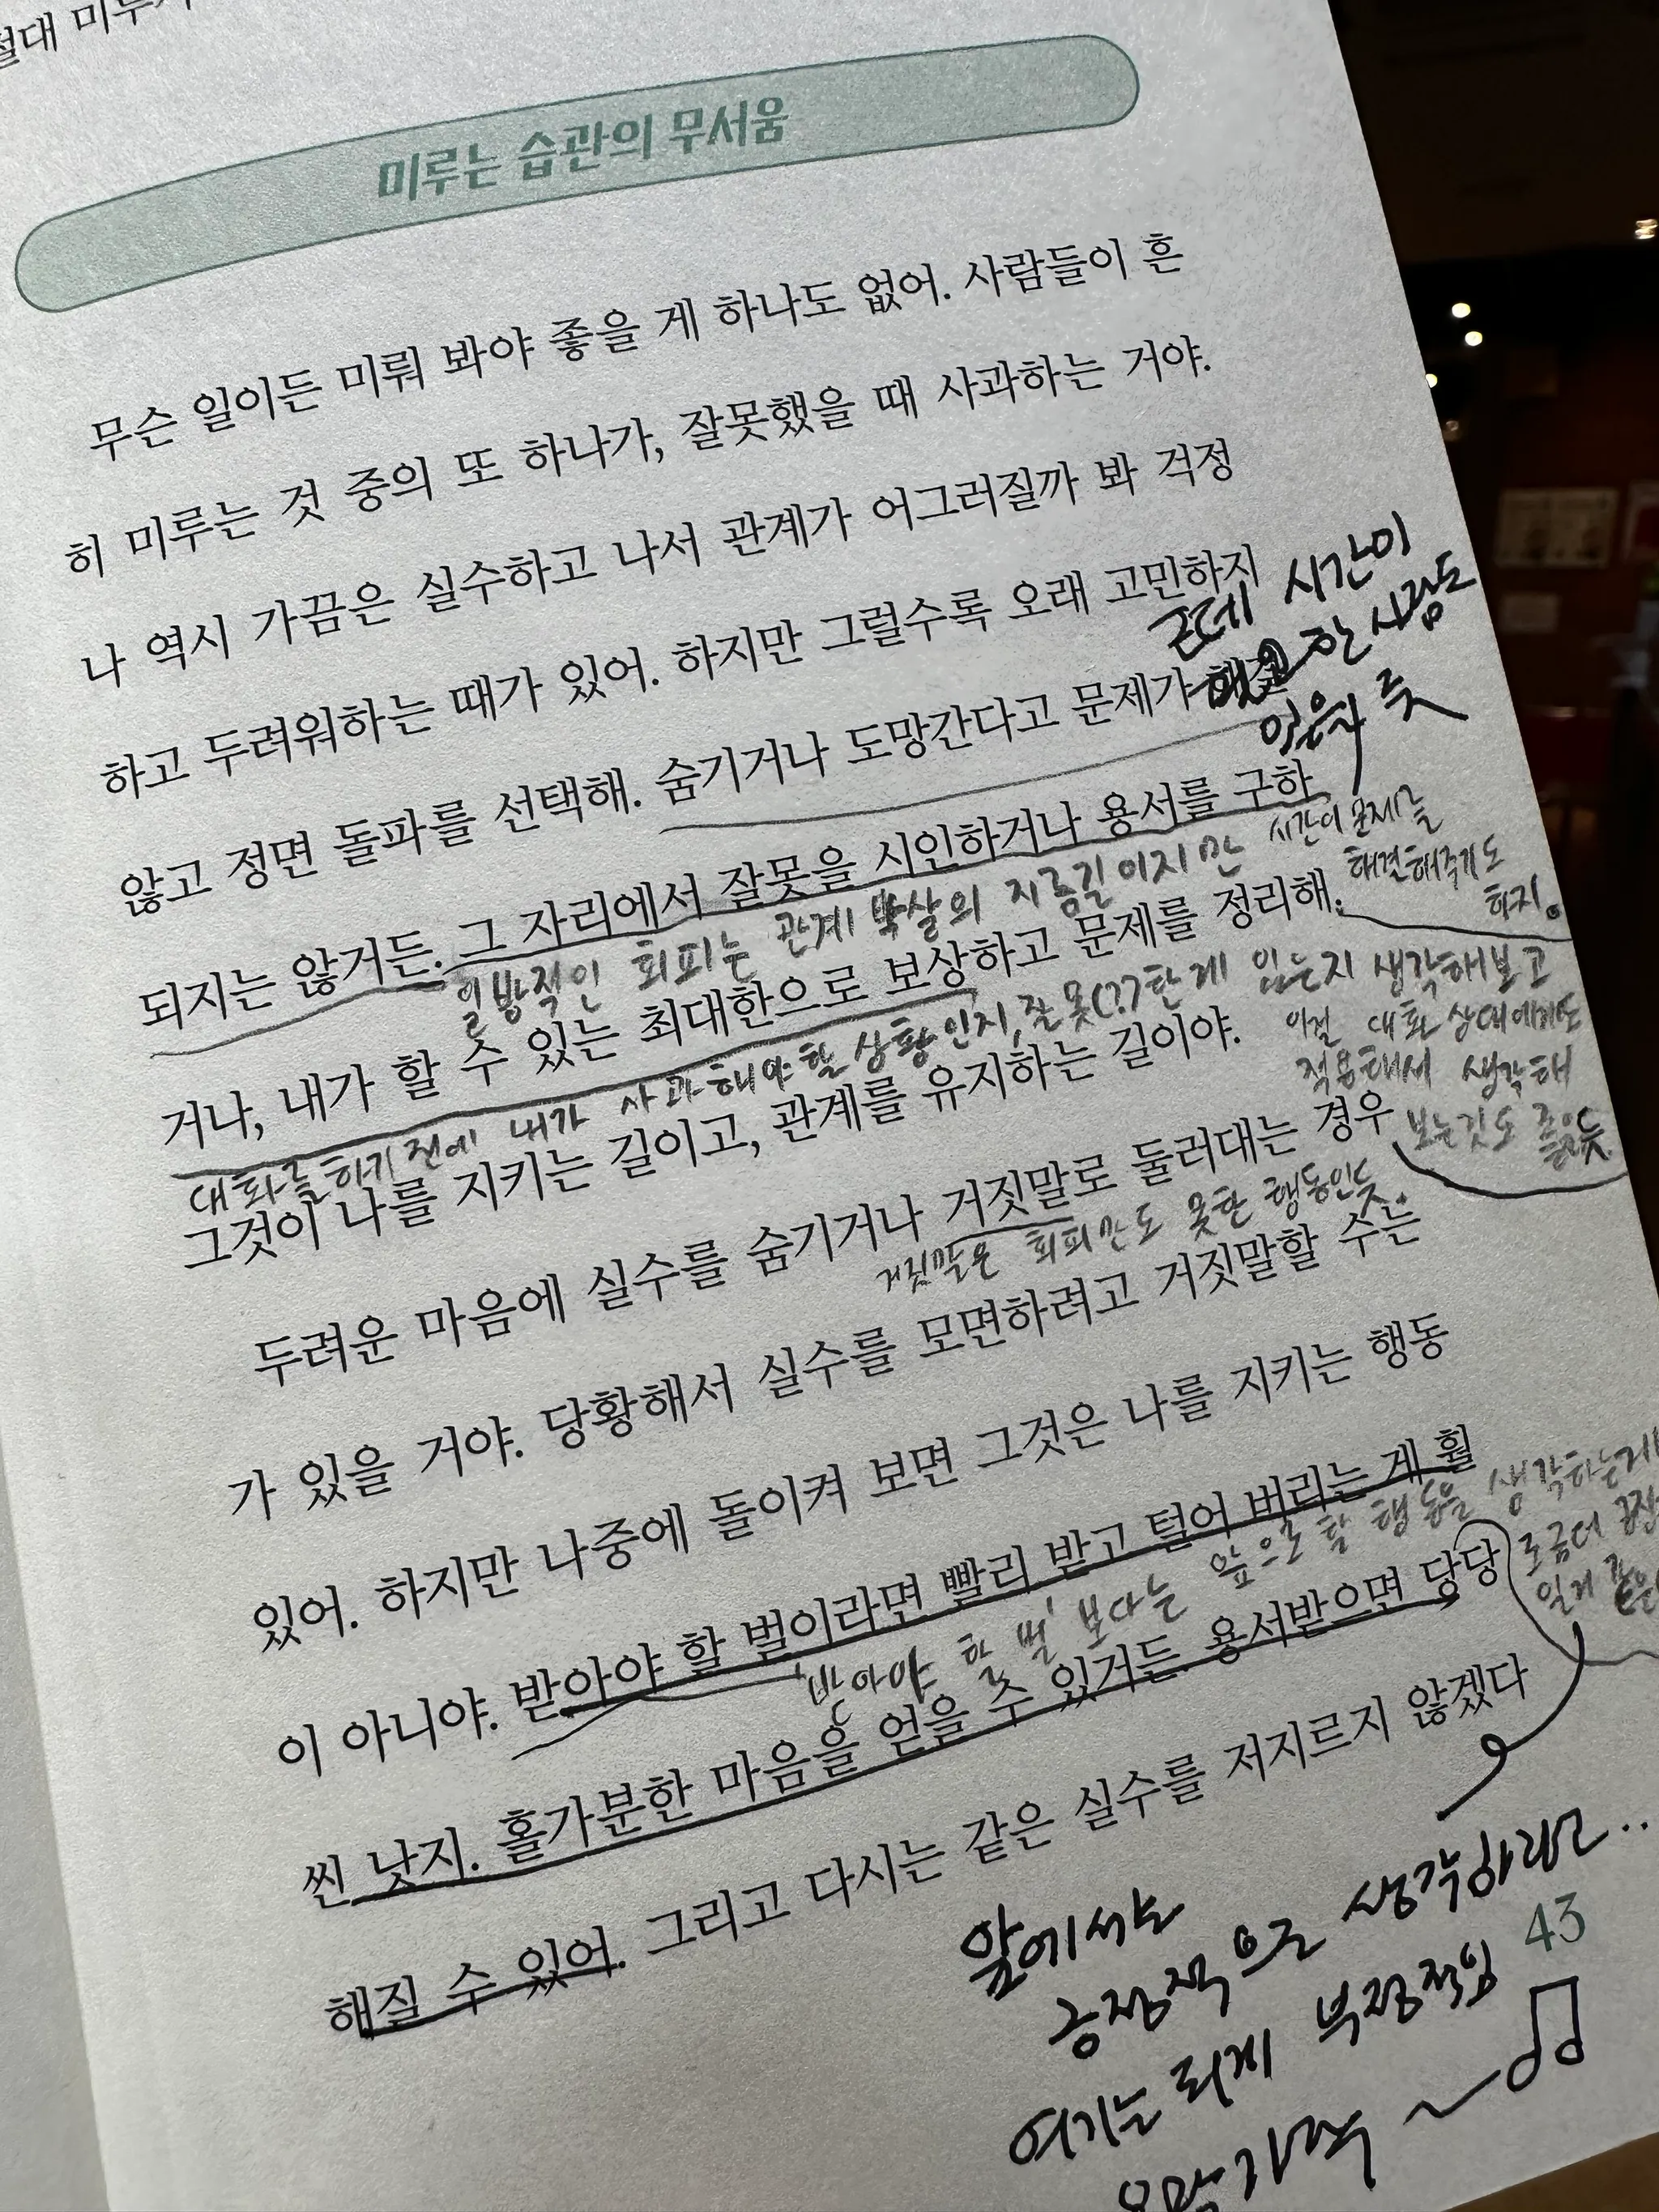 절대 미루
미루는 습관의 무서움
무슨 일이든 미뤄 봐야 좋을 게 하나도 없어. 사람들이 흔
히 미루는 것 중의 또 하나가, 잘못했을 때 사과하는 거야.
나 역시 가끔은 실수하고 나서 관계가 어그러질까 봐 걱정
하고 두려워하는 때가 있어. 하지만 그럴수록 오래 고민하지
근데 시간이
않고 정면 돌파를 선택해. 숨기거나 도망간다고 문제가 해결
한 사람도
있은자 굿
되지는 않거든. 그 자리에서 잘못을 시인하거나 용서를 구하
일방적인 회피는 관계 박살의 지름길이지만 시간이 문제를
해결해주기도
하지.
거나, 내가 할 수 있는 최대한으로 보상하고 문제를 정리해.
대화를 하기 전에 내가 사과해야 할 상황인지, 잘못(?)한게 있는지 생각해보고
이걸 대화 상대에게도
적용해서 생각해
보는것도 좋을듯.
그것이 나를 지키는 길이고, 관계를 유지하는 길이야.
두려운 마음에 실수를 숨기거나 거짓말로 둘러대는 경우
거짓말은 회피만도 못한 행동인듯.
가 있을 거야. 당황해서 실수를 모면하려고 거짓말할 수는
있어. 하지만 나중에 돌이켜 보면 그것은 나를 지키는 행동
이 아니야. 받아야 할 벌이라면 빨리 받고 털어 버리는 게 훨
'받아야 할 벌' 보다는 앞으로 할 행동을 생각하는게
조금더
일게
씬 낫지. 홀가분한 마음을 얻을 수 있거든. 용서받으면 당당
해질 수 있어. 그리고 다시는 같은 실수를 저지르지 않겠다
앞에서는
긍정적으로 생각하라고..
여기는 되게 부정적임
43